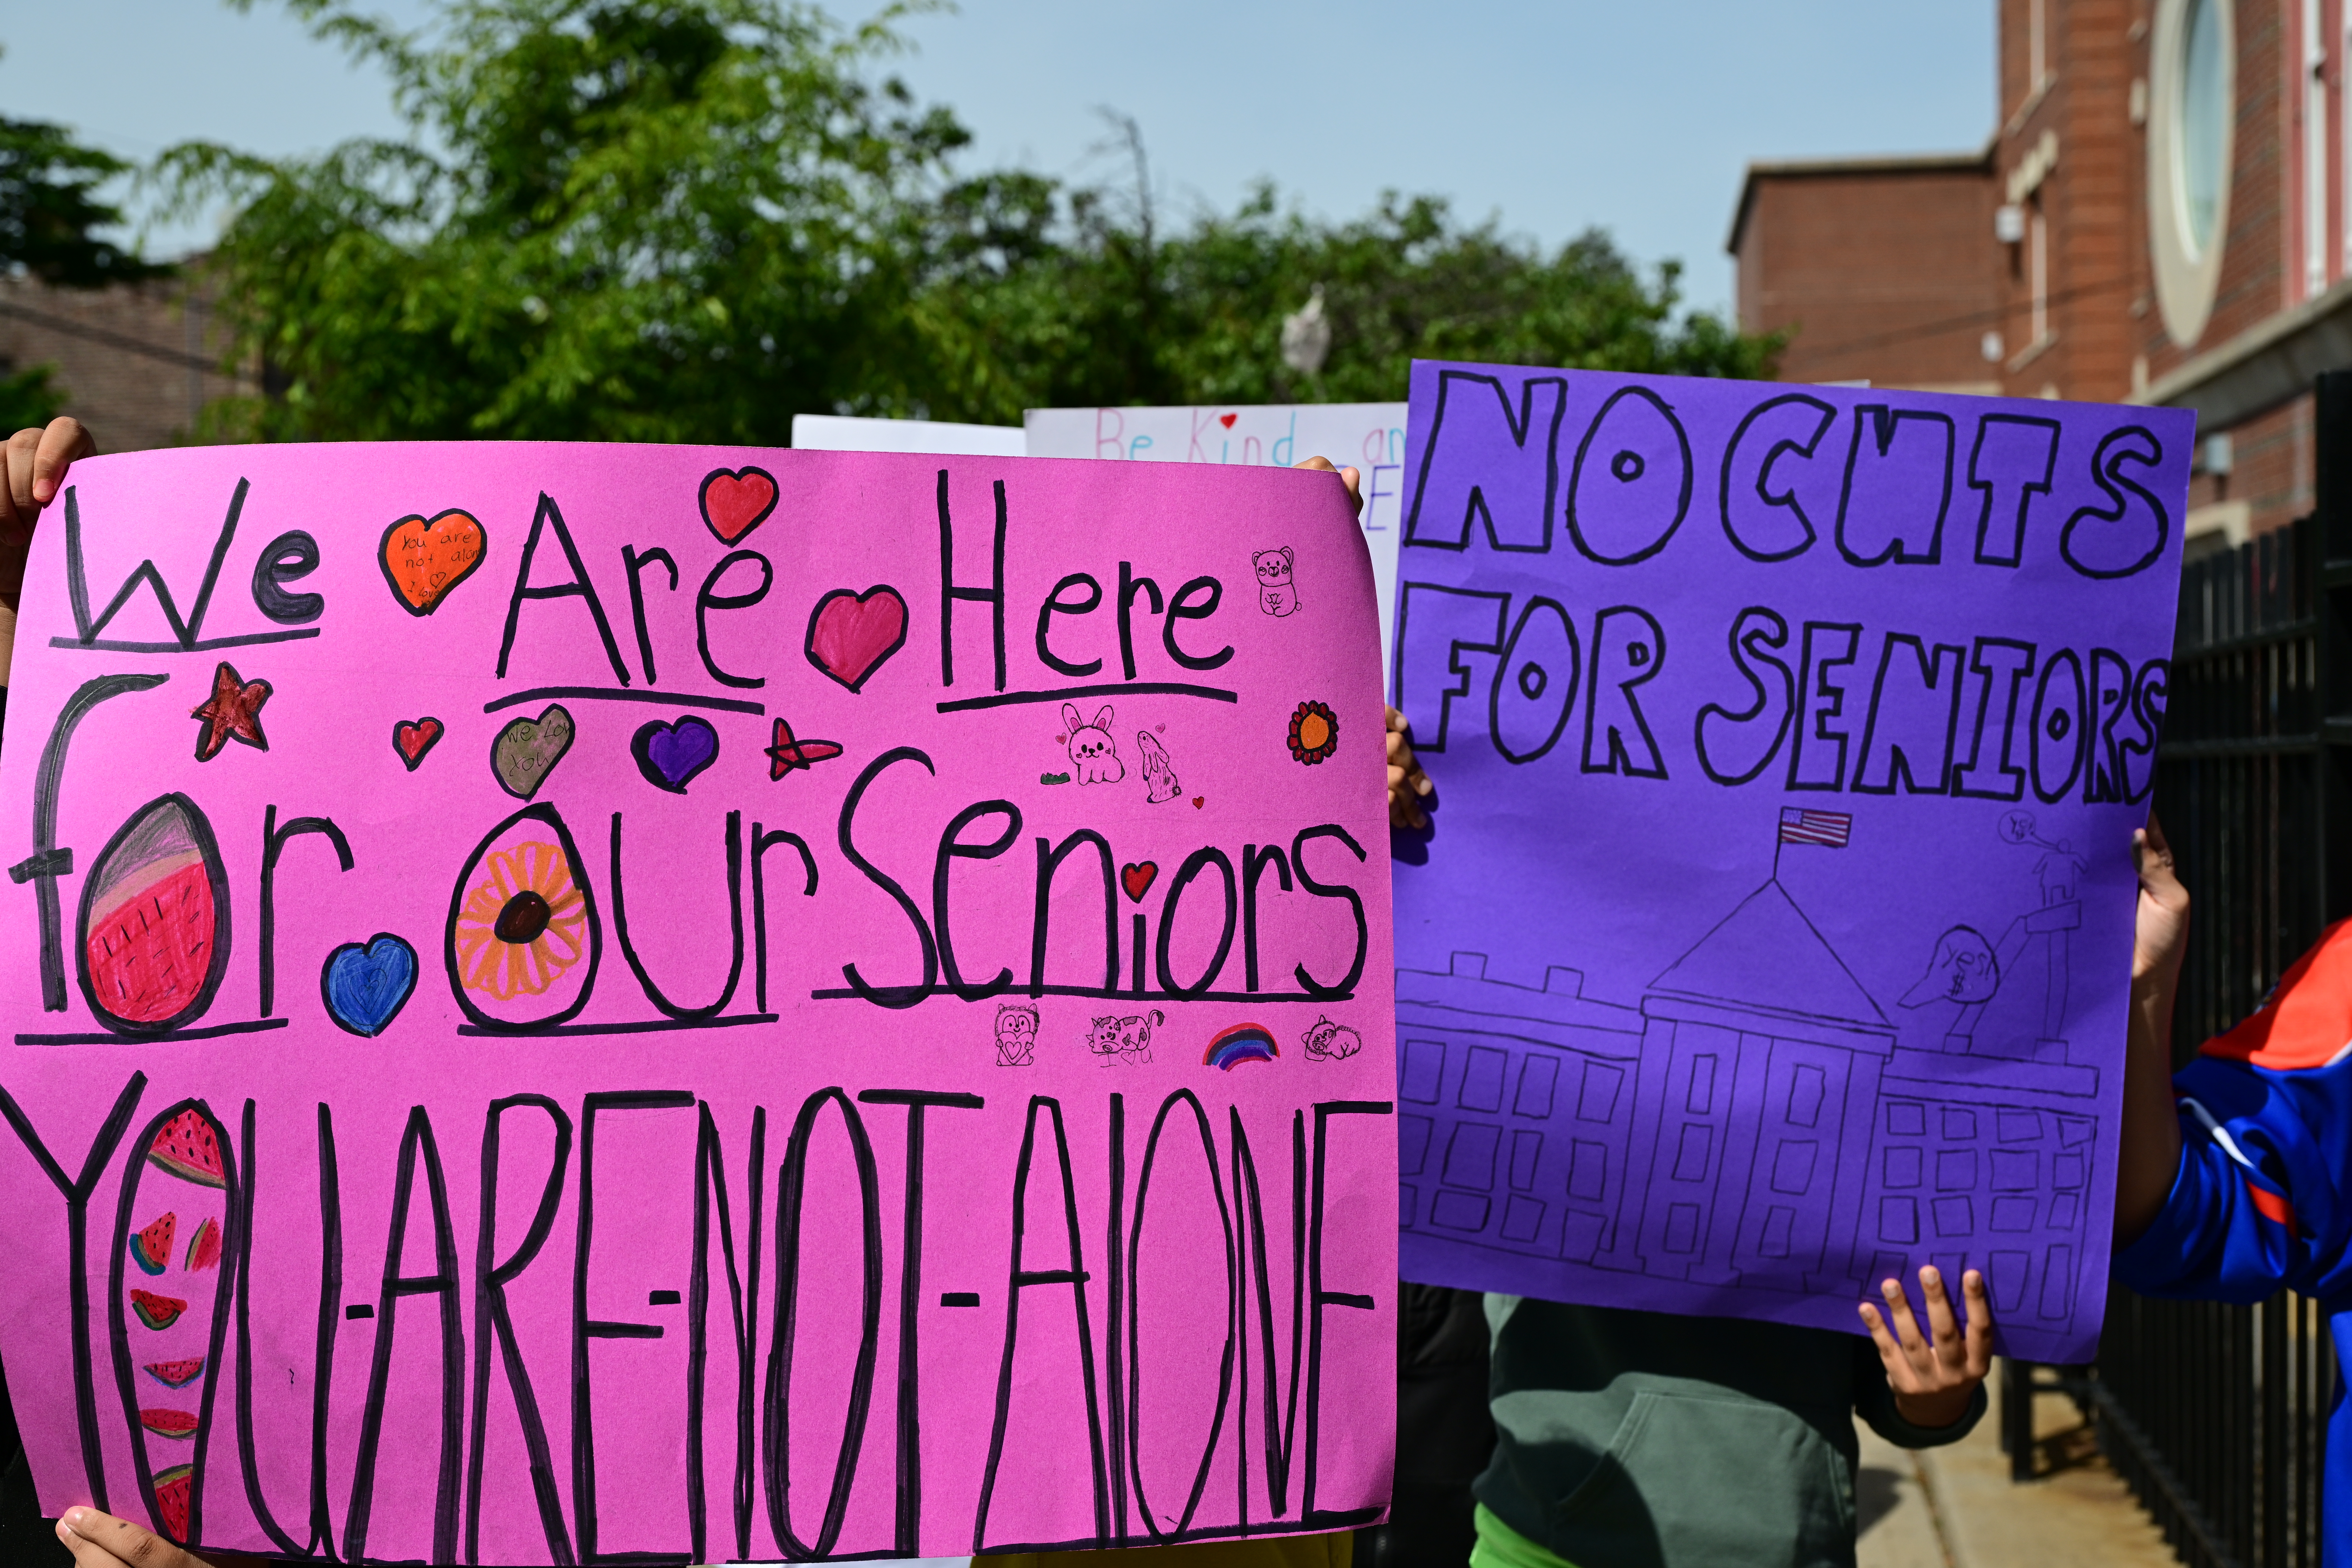 We Are Here
You are
not alone
I love
for our Seniors
We Lov
you
I ♡ u
YOU-ARE-NOT-ALONE
Be Kind an
E
NO CUTS
FOR SENIORS